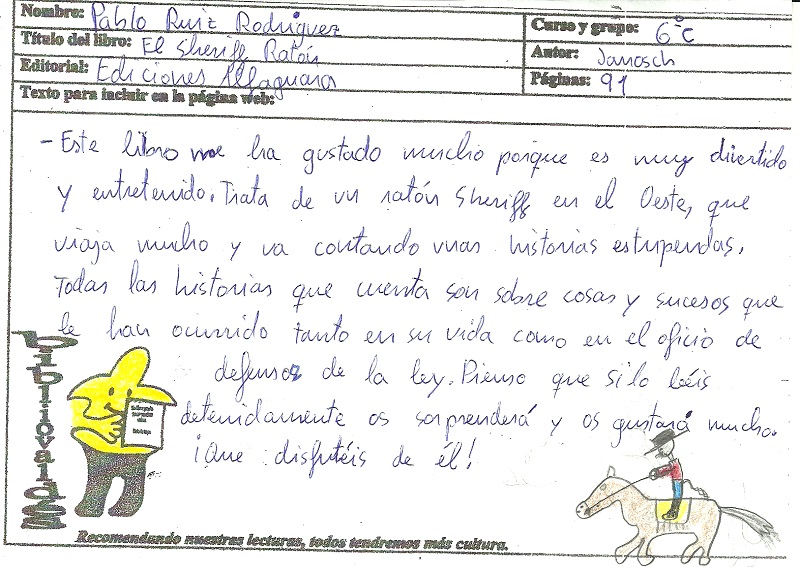 Nombre: Pablo Ruiz Rodríguez
Curso y grupo: 6ºC
Título del libro: El Sheriff Ratón
Autor: Janosch
Editorial: Ediciones Alfaguara
Páginas: 91
Texto para incluir en la página web:
- Este libro me ha gustado mucho porque es muy divertido
y entretenido. Trata de un ratón Sheriff en el Oeste, que
viaja mucho y va contando unas historias estupendas.
Todas las historias que cuenta son sobre cosas y sucesos que
le han ocurrido tanto en su vida como en el oficio de
defensor de la ley. Pienso que si lo leéis
detenidamente os sorprenderá y os gustará mucho.
¡Que disfrutéis de él!
bibliovaldes
Recomendando nuestras lecturas, todos tendremos más cultura.